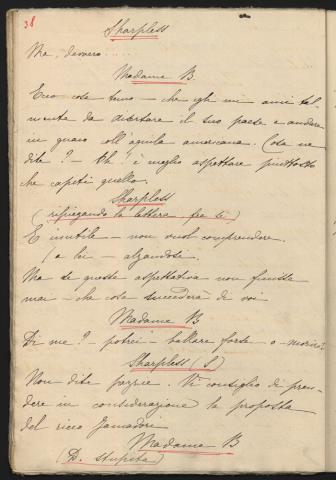 38
Sharpless
Ma, davvero.....
Madame B.
Ecco cosa temo – che egli mi ami tal-
mente da disertare il suo paese e andare
in guai coll'aquila americana. Cosa ne
dite? – Eh! è meglio aspettare piuttosto
che capiti quello.
Sharpless
(ripiegando la lettera – fra sè)
È inutile – non vuol comprendere.
(a lei – alzandosi
Ma se questa aspettativa non finisse
mai – che cosa succederà di voi
Madame B.
Di me? – potrei – ballare forse – o – morire?
Sharpless (S)
Non dite pazzie. Vi consiglio di pren-
dere in considerazione la proposta
del ricco Yamadori
Madame B
(D. stupita)